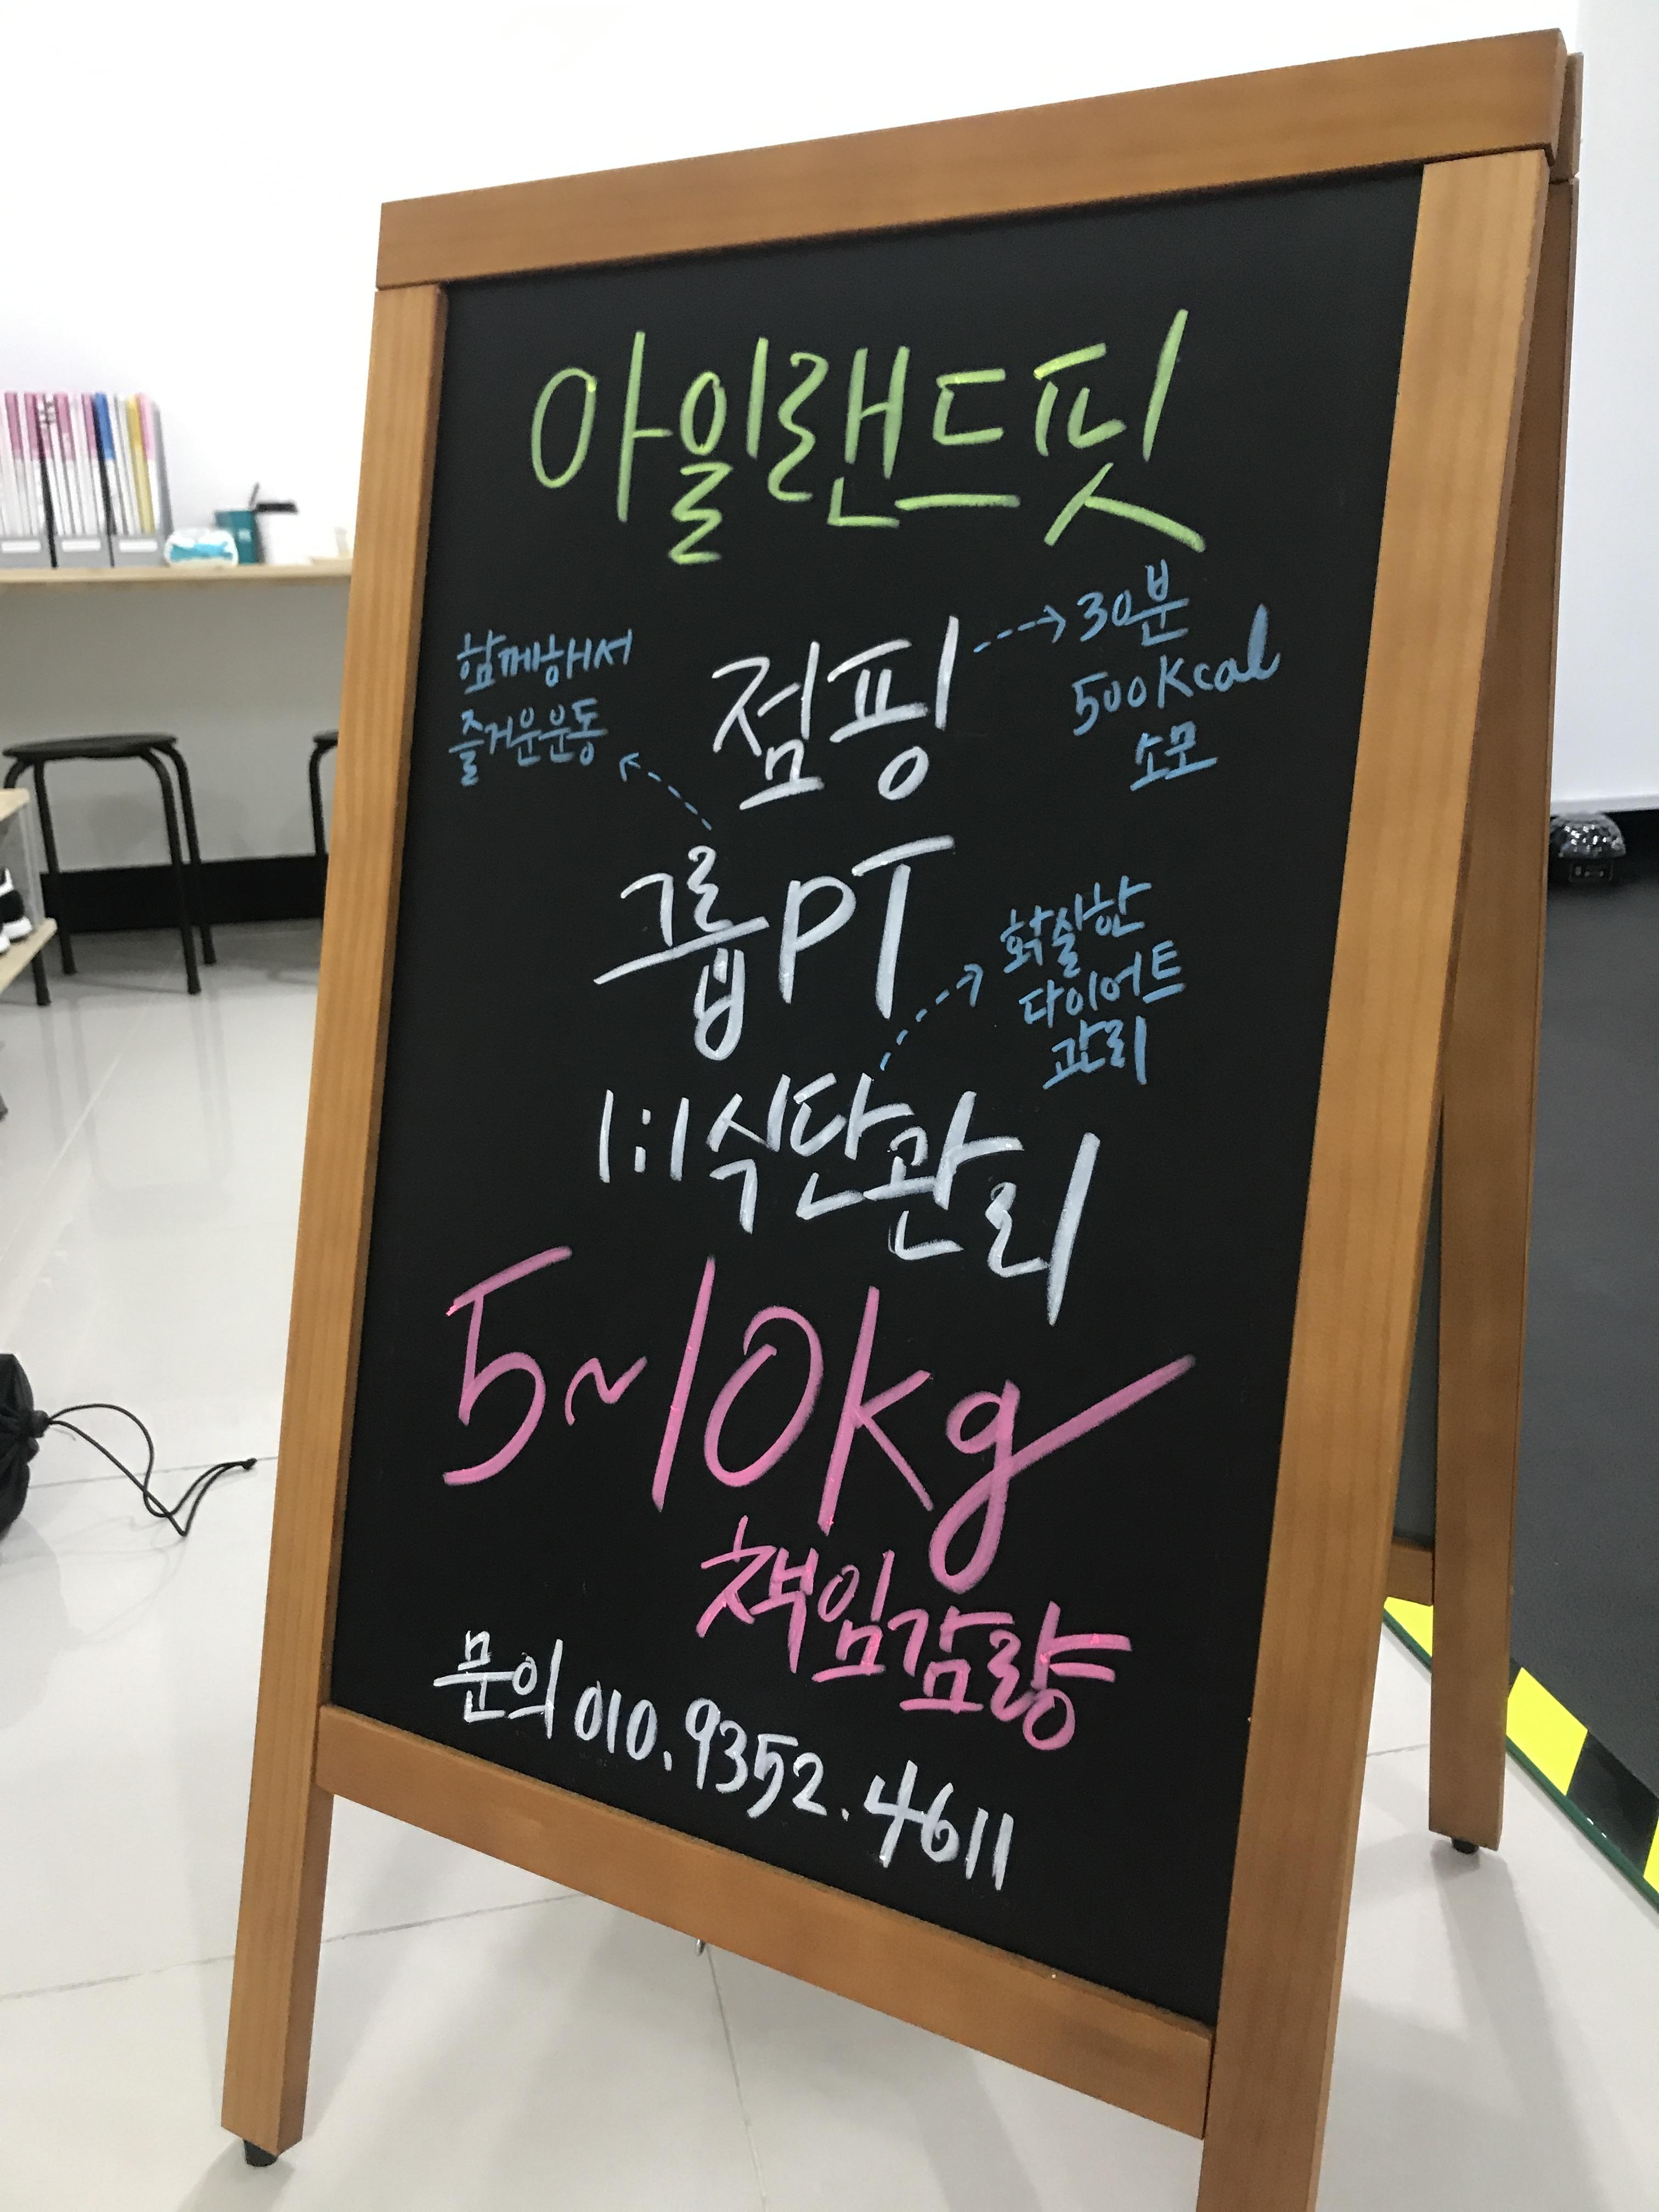 아일랜드핏
점핑
30분
500Kcal
소모
함께해서
즐거운운동
그룹PT
확실한
다이어트
관리
1:1식단관리
5~10kg
책임감량
문의 010.9352.4611